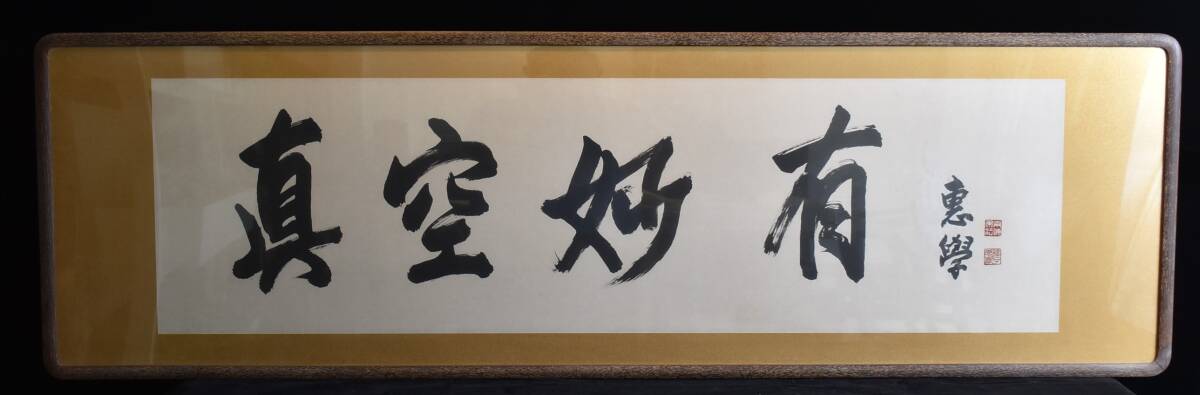 真空妙有
惠學